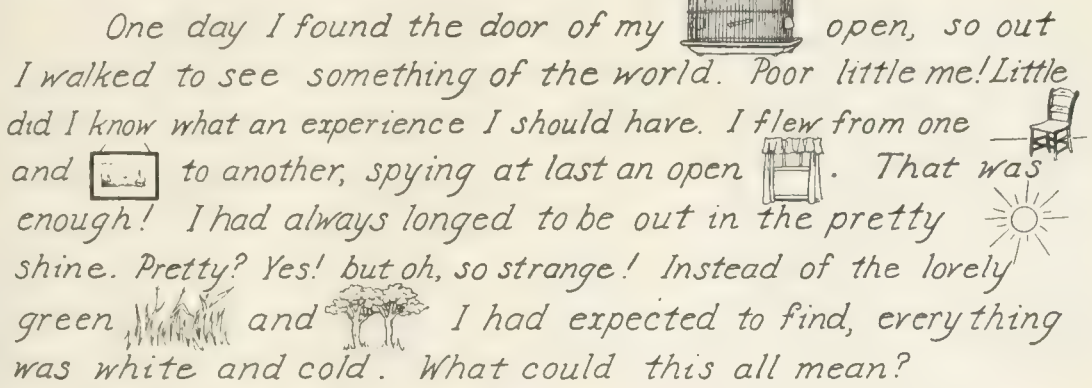 One day I found the door of my open, so out
I walked to see something of the world. Poor little me! Little
did I know what an experience I should have. I flew from one
and to another, spying at last an open . That was
enough! I had always longed to be out in the pretty
shine. Pretty? Yes! but oh, so strange! Instead of the lovely
green and I had expected to find, everything
was white and cold. What could this all mean?